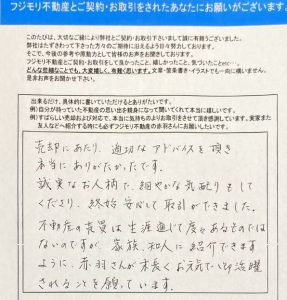 フジモリ不動産とご契約・お取引をされたあなたにお願いがございます。
このたびは、大切なご縁により弊社とご契約・お取引下さいまして誠に有難うございました。
弊社はたずさわって下さった方々のご期待に沿えるよう日々努力しております。
そこで、今後の参考や原動力として皆様のお声をお聞きしております。
フジモリ不動産とご契約・お取引をして良かったこと、嬉しかったこと、気づいたことetc…
どんな些細なことでも、大変嬉しく、有難く思います。文章・箇条書き・イラストでも一向に構いません。
是非お声をお聞かせ下さい。
出来るだけ、具体的に書いていただけるとありがたいです。
例）自分が持っていた不動産の思い出を親身になって聞いてくれて本当に嬉しいです。
例）すばらしい売却および対応で、本当に気持ちのよりお取引をさせて頂き感謝しています。実家また
友人などへ紹介する時にも必ずフジモリ不動産の赤羽さんにお願いしたいです。
売却にあたり、適切なアドバイスを頂き
本当にありがたかったです。
誠実なお人柄で、細やかな気配りもして
くださり、終始安心して取引ができました。
不動産の売買は生涯通じて度々あるものでは
ないのですが、家族、知人に紹介できます
ように、赤羽さんが末長くお元気でご活躍
されることを願っています。